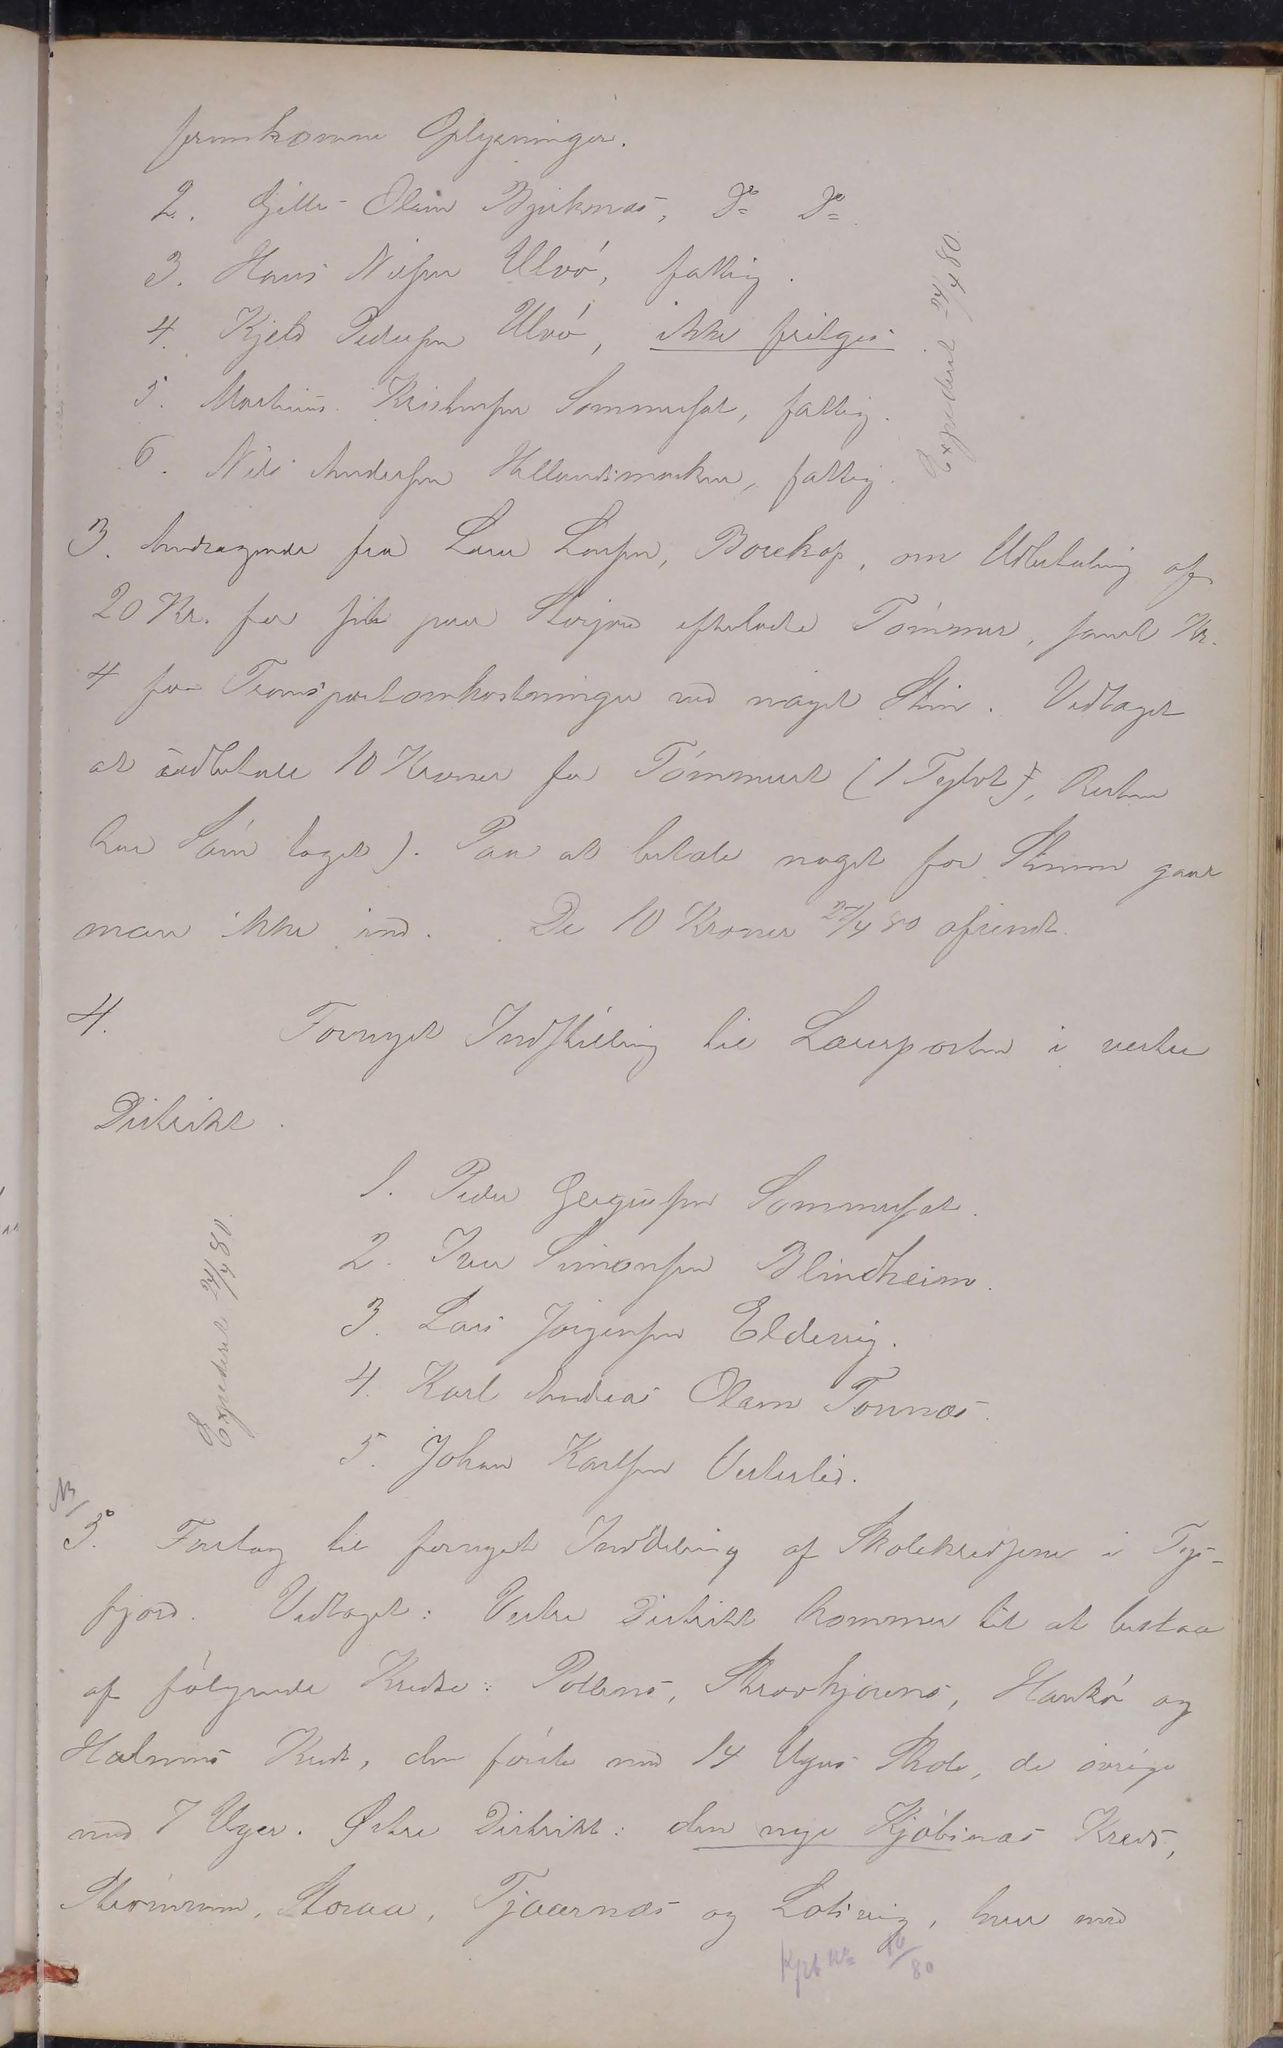 fremkomne Oplysninger.
2. Gjette-Olsen Bjerknæs, Do Do
3. Hans Nilsen Ulvö, fattig.
4. Kjeld Pedersen Ulvö, ikke fritges
5. Martinus Kristensen Sommerset, fattig.
6. Nils Andersen Hellandsmarken, fattig.
Expederet 24/4 80.
3. Andragende fra Lars Larsen, Borekop, om Udbetaling af
20 Kr. for sit paa Storjord efterladte Tömmer, samt Kr.
4 for Transportomkostninger ved noget Stin. Vedtaget
at udbetale 10 Kroner for Tömmeret (1 Tylvt), Resten
har taget). Paa at betale noget for gaar
man ikke ind. De 10 Kroner 24/4 80 afsendt.
4. Fornyet Indstilling til Lærerposten i vestre
Distrikt.
1. Peder Gergusen Sommerset.
2. Iver Simonsen Blindheim.
3. Lars Jörgensen Eldevig.
4. Karl Andreas Olsen Tonnæs.
5. Johan Karlsen Vesterlid.
Expederet 24/4 80.
NB
5. Forslag til fornyet Inddeling af Skolekredsene i Tys-
fjord. Vedtaget: Vestre Distrikt kommer til at bestaa
af fölgende Kredse: Pollens, Skrovkjosens, Haukö og
Holmens Kreds, den förste med 14 Ugers Skole, de övrige
med 7 Uger. Østre Distrikt: den nye Kjöbsnæs Kreds,
Storaa, Tjaarnæs og Lotsvig, hver med
80